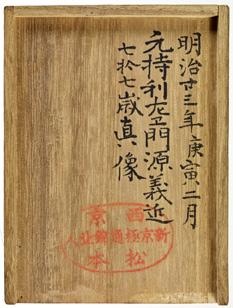 明治廿三年庚寅二月
元持利左ヱ門源義近
七拾七歳真像
西京
新京極通錦北入
松本